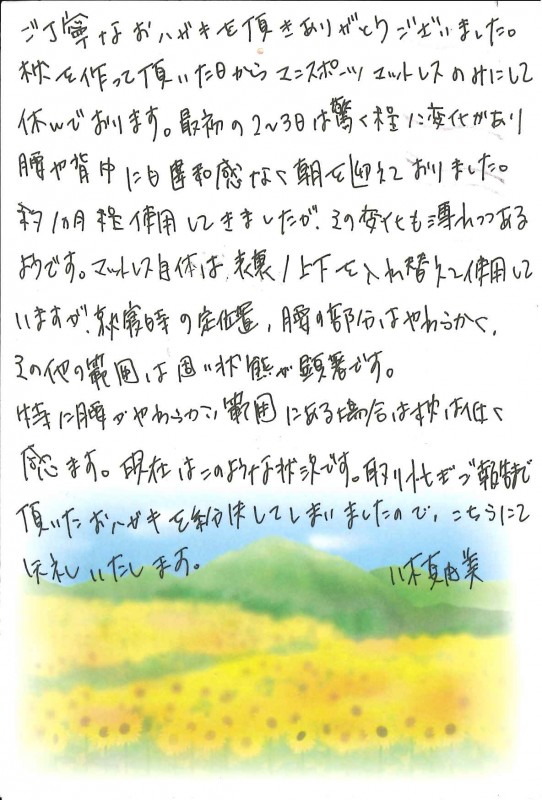 ご丁寧なおハガキを頂きありがとうございました。
枕を作って頂いた日からマニスポーツマットレスのみにして
休んでおります。最初の2〜3日は驚く程に変化があり
腰や背中にも違和感なく朝を迎えておりました。
約1カ月程使用してきましたが、その変化も薄れつつある
ようです。マットレス自体は、表裏/上下を入れ替えて使用して
いますが、就寝時の定位置、腰の部分はやわらかく、
その他の範囲は固い状態が顕著です。
特に腰がやわらかい範囲にある場合は枕は低く
感じます。現在はこのような状況です。取り急ぎご報告まで
頂いたおハガキを紛失してしまいましたので、こちらにて
失礼いたします。 真由美